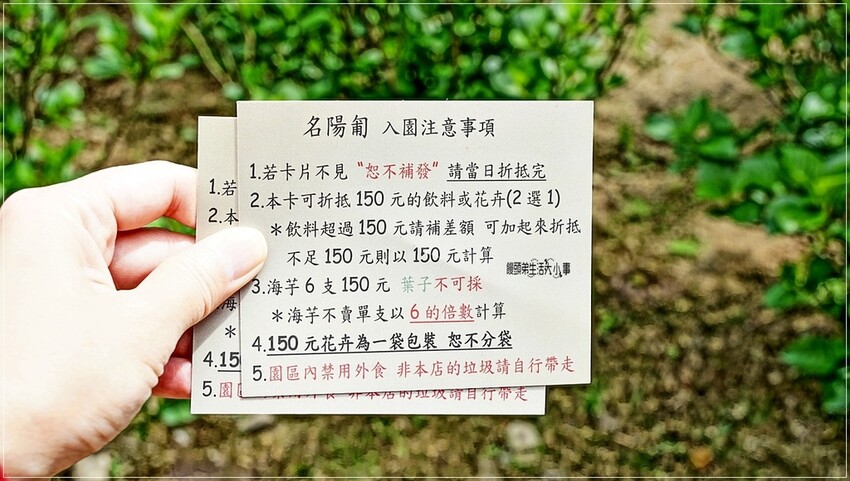 名陽匍 入園注意事項
1.若卡片不見 “恕不補發” 請當日折抵完
2.本卡可折抵 150 元的飲料或花卉(2 選 1)
＊飲料超過 150 元請補差額 可加起來折抵
不足 150 元則以 150 元計算
3.海芋 6 支 150 元 葉子不可採
＊海芋不賣單支以 6 的倍數計算
4.150 元花卉為一袋包裝 恕不分袋
5.園區內禁用外食 非本店的垃圾請自行帶走
饅頭弟生活大小事
1.若
2.本
＊
3.海
＊
4.150
5.園區內禁用外食 非本店的垃圾請自行帶走